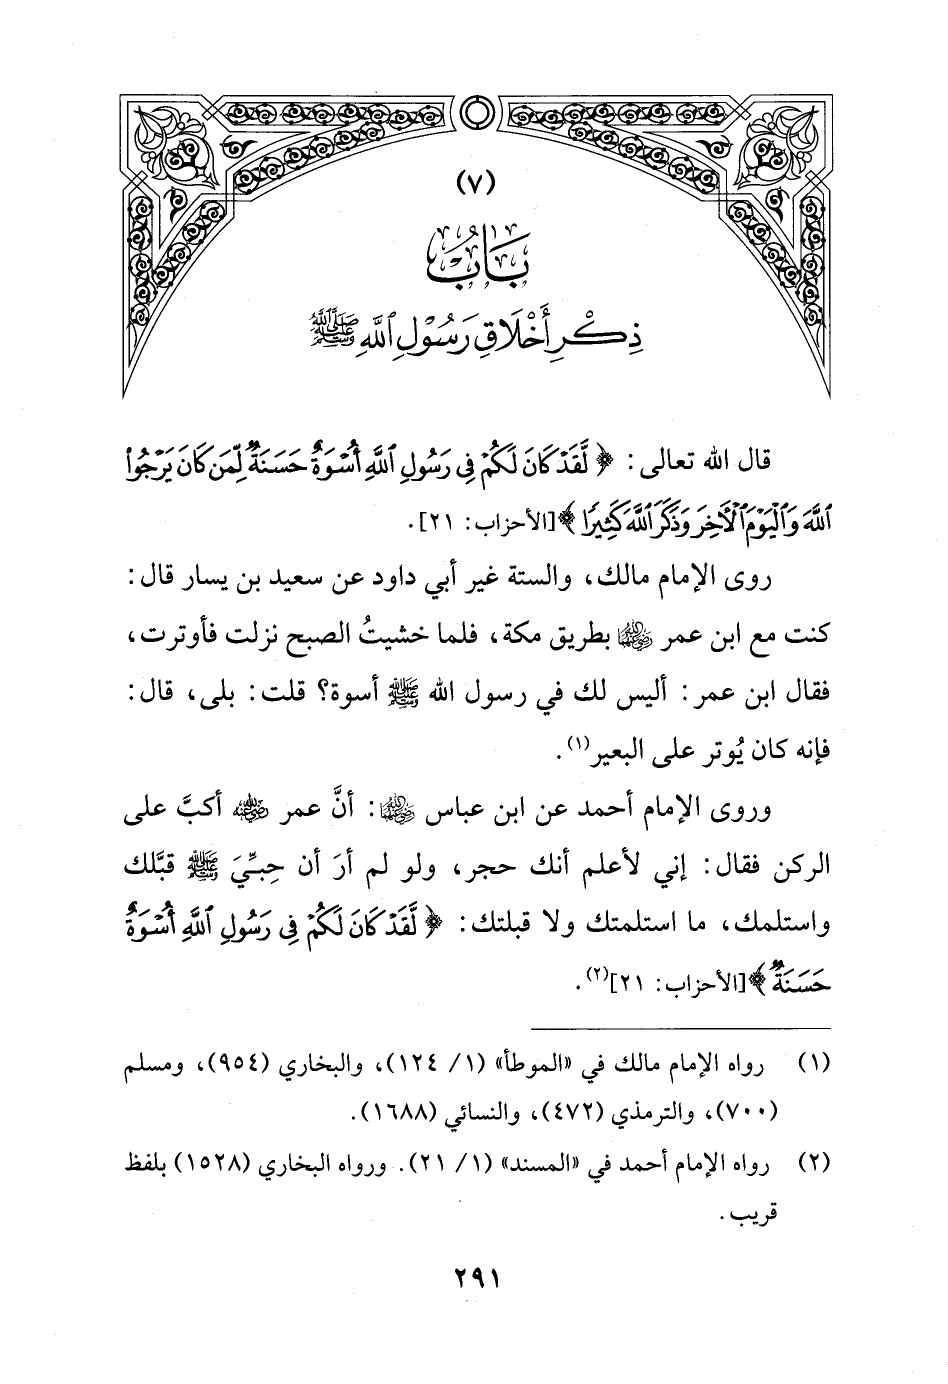 (٧)
بَابُ
ذِكْرِ أَخْلَاقِ رَسُوْلِ اللَّهِ ﷺ
قال الله تعالى: ﴿لَّقَدْ كَانَ لَكُمْ فِي رَسُولِ ٱللَّهِ أُسْوَةٌ حَسَنَةٌ لِّمَن كَانَ يَرْجُوا۟
ٱللَّهَ وَٱلْيَوْمَ ٱلْأَخِرَ وَذَكَرَ ٱللَّهَ كَثِيرًا﴾ [الأحزاب: ٢١].
روى الإمام مالك، والستة غير أبي داود عن سعيد بن يسار قال:
كنت مع ابن عمر رضي الله عنهما بطريق مكة، فلما خشيتُ الصبح نزلت فأوترت،
فقال ابن عمر: أليس لك في رسول الله ﷺ أسوة؟ قلت: بلى، قال:
فإنه كان يُوتر على البعير(١).
وروى الإمام أحمد عن ابن عباس رضي الله عنهما: أنَّ عمر رضي الله عنه أكبَّ على
الركن فقال: إني لأعلم أنك حجر، ولو لم أرَ أن حِبِّيَ ﷺ قبَّلك
واستلمك، ما استلمتك ولا قبلتك: ﴿لَّقَدْ كَانَ لَكُمْ فِي رَسُولِ ٱللَّهِ أُسْوَةٌ
حَسَنَةٌ﴾ [الأحزاب: ٢١](٢).
(١) رواه الإمام مالك في «الموطأ» (١/ ١٢٤)، والبخاري (٩٥٤)، ومسلم
(٧٠٠)، والترمذي (٤٧٢)، والنسائي (١٦٨٨).
(٢) رواه الإمام أحمد في «المسند» (١/ ٢١). ورواه البخاري (١٥٢٨) بلفظ
قريب.
٢٩١